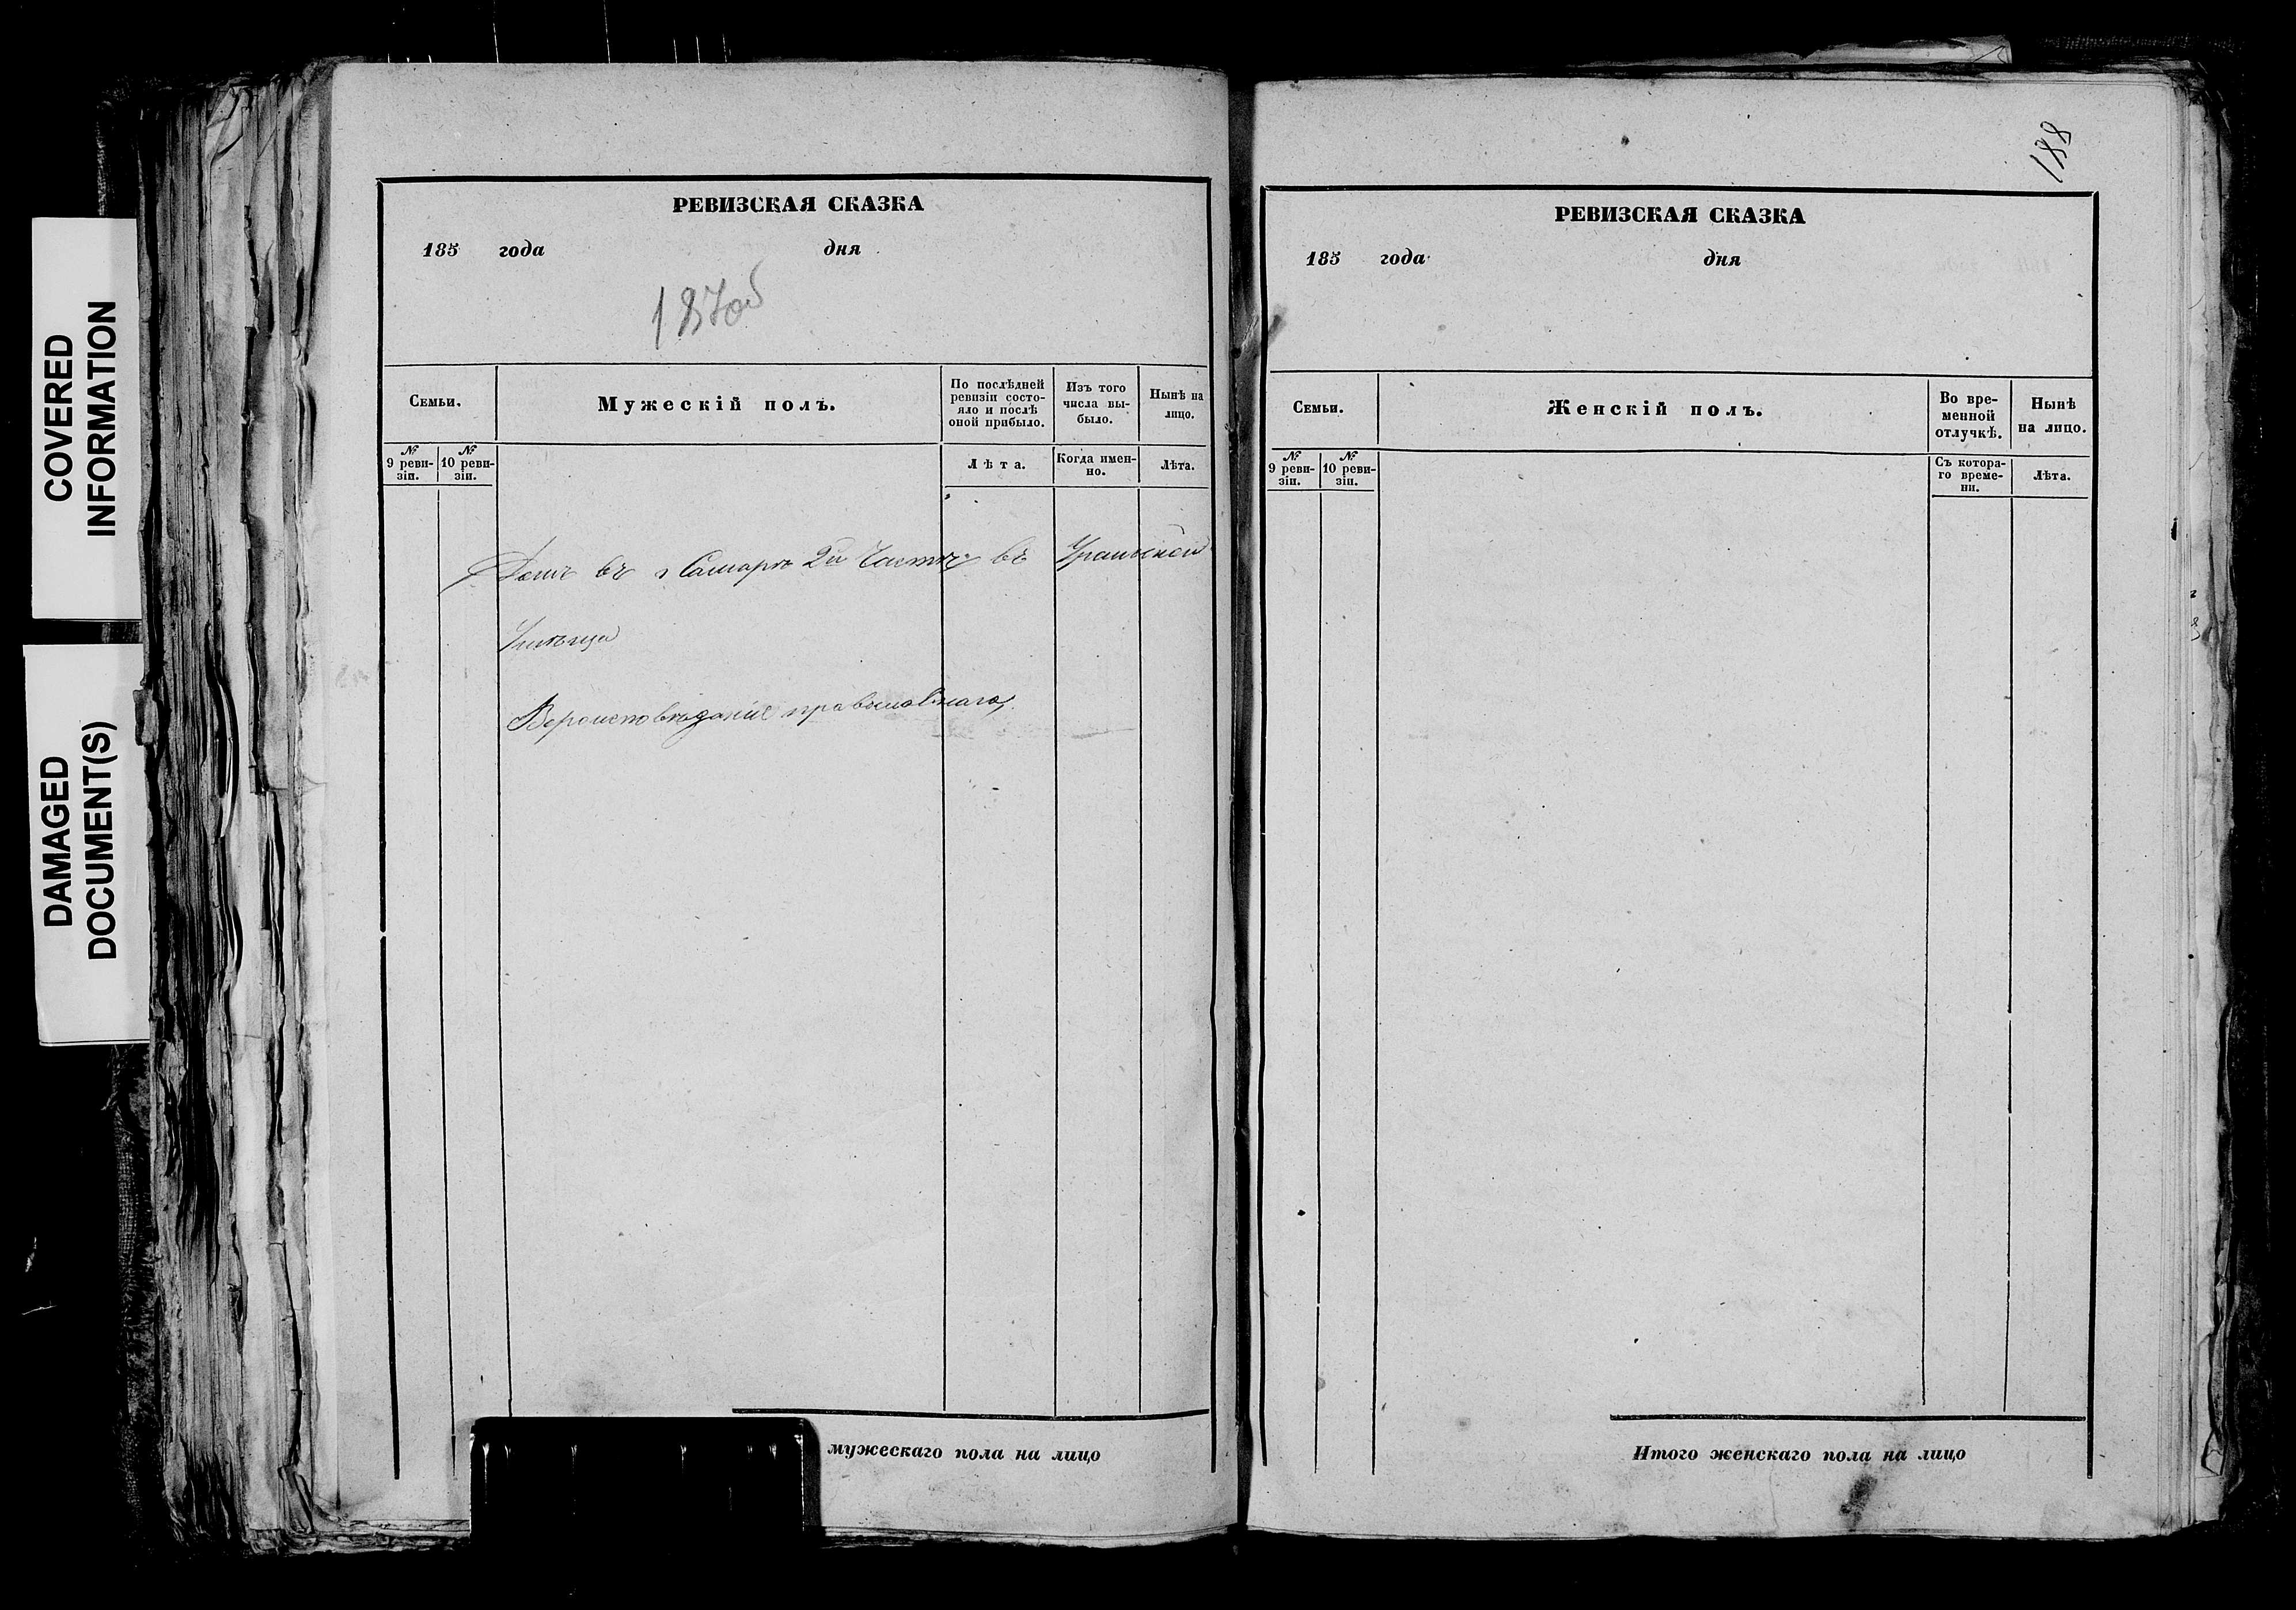 COVERED
INFORMATION
DAMAGED
DOCUMENT(S)
РЕВИЗСКАЯ СКАЗКА
185 года дня
187об
Семьи.
Мужескій полъ.
По послѣдней ревизіи состо-
яло и послѣ
оной прибыло.
Изъ того
числа вы-
было.
Нынѣ на
лицо.
№
9 реви-
зіи.
№
10 реви-
зіи.
Лѣта.
Когда имен-
но.
Лѣта.
Домъ въ г Самарѣ 2й Части въ Уральской
Улицѣ
Вероисповеданіе православнаго
мужескаго пола на лицо
188
РЕВИЗСКАЯ СКАЗКА
185 года дня
Семьи.
Женскій полъ.
Во вре-
менной
отлучкѣ.
Нынѣ
на лицо.
№
9 реви-
зіи.
№
10 реви-
зіи.
Съ котора-
го време-
ни.
Лѣта.
Итого женскаго пола на лицо